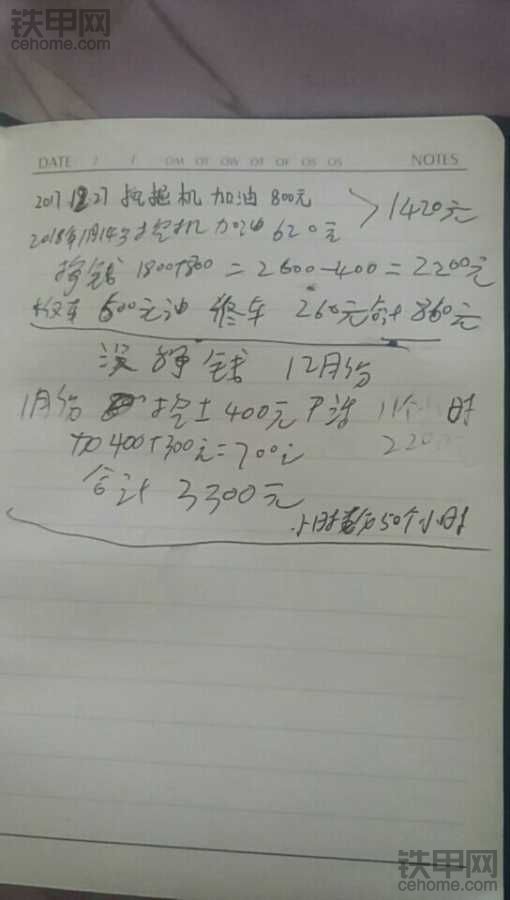 铁甲网
cehome.com
DATE / / OM OT OW OT OF OS OS NOTES
2017.12.27 挖掘机 加油 800元
2018年1月14号 挖机 加油 620元
> 1420元
挣钱 1800+800 = 2600-400 = 2200元
600元油 修车 260元合计 860元
没挣钱 12月份
1月份 挖土 400元 11个小时
加400+300元=700元 220
合计 3300元
小时数为50个小时
铁甲网
cehome.com